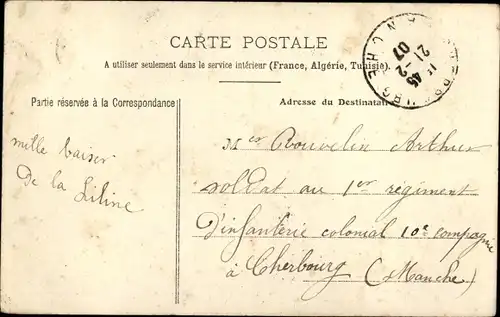 CARTE POSTALE
A utiliser seulement dans le service intérieur (France, Algérie, Tunisie).
Partie réservée à la Correspondance
Adresse du Destinatai
mille baiser
De la Liline
Mer Rouvelin Arthur
soldat au 1er régiment
D'infanterie colonial 10e compagnie
à Cherbourg (Manche)
CHERBOURG
11 45
21-2
07
MANCHE